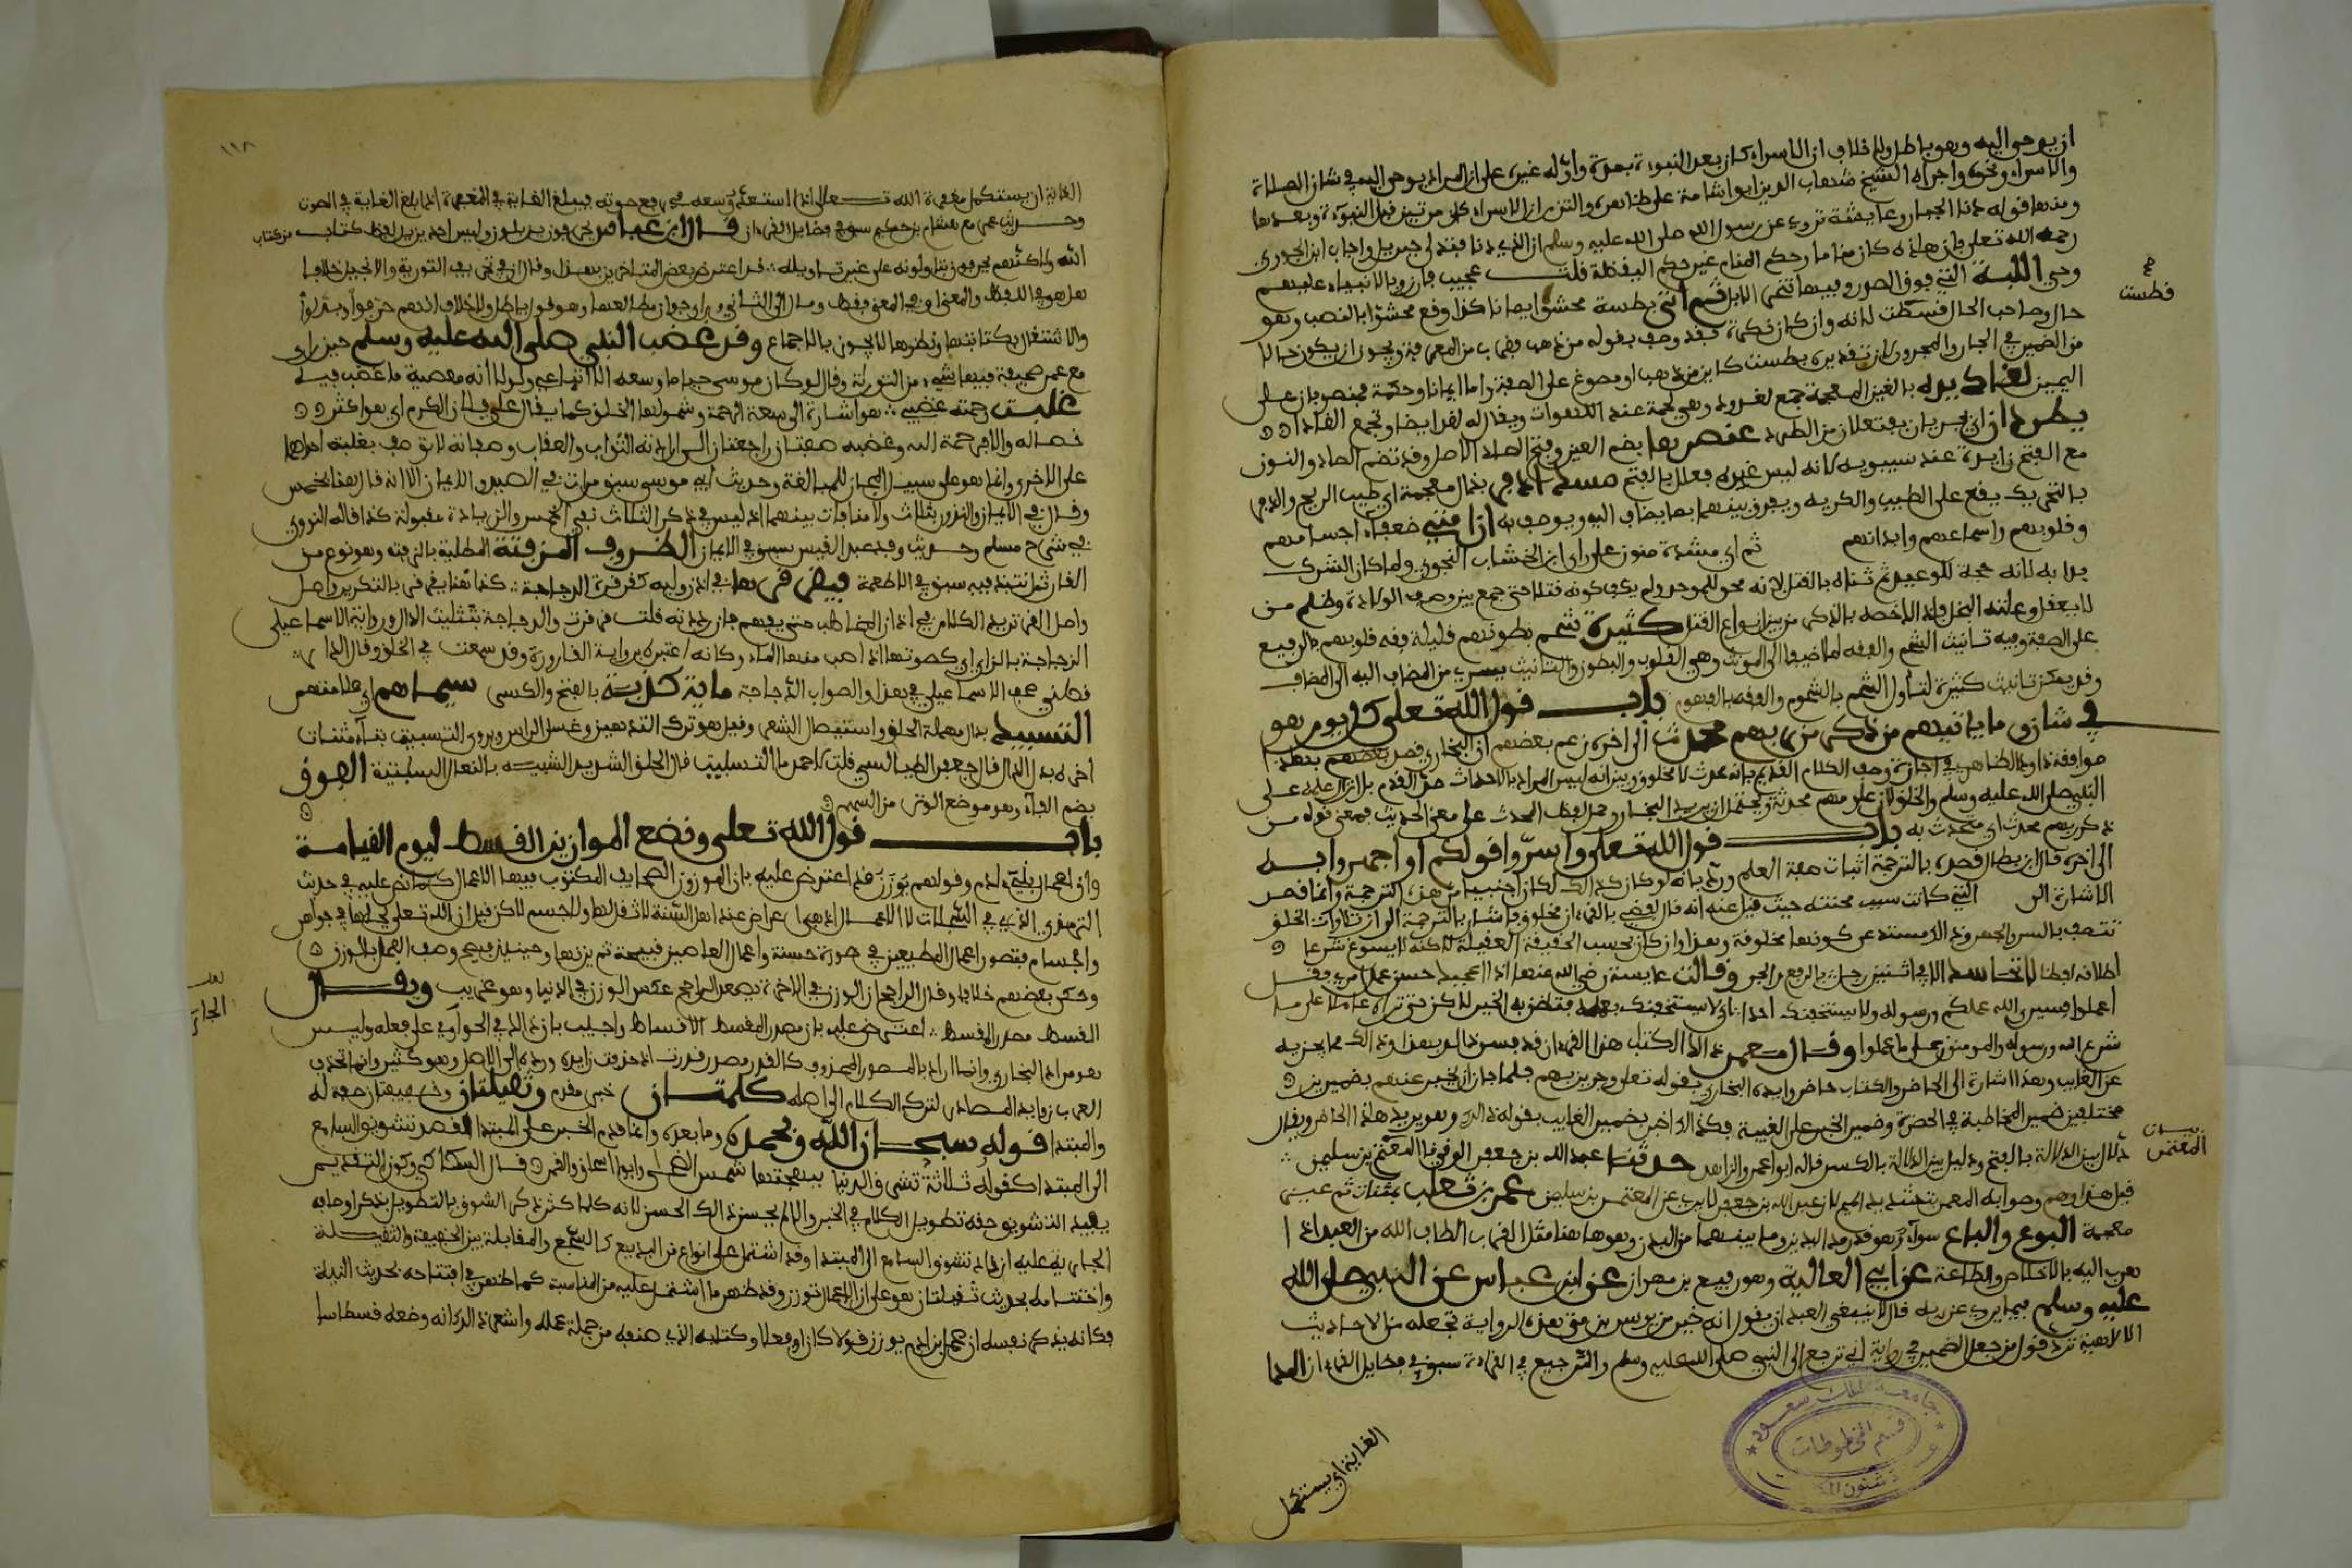 ان يوحى اليه وهو باطل ولا خلاف ان الاسراء كان بعد النبوءة بمدة واوله غيره على ان المراد يوحى اليه في شان الصلاة
والاسراء ونحوه واجراه الشيخ شهاب الدين ابو شامة على ظاهره والتزم ان الاسراء كان مرتين قبل النبوءة وبعدها
ومنها قوله دنا الجبار وعايشة تروي عن رسول الله صلى الله عليه وسلم ان الذي دنا فتدلى جبريل واجاب ابن الجوزي
رحمه الله تعلى بان هذا كان مناما وحكم المنام غير حكم اليقظة قلت عجيب
وهي اللبة التي فوق الصدر وفيها تنحر الابل ثم اتي بطست محشوا ايمانا كذا وقع محشوا بالنصب وهو
حال وصاحب الحال فسطت لانه وان كان نكرة فقد وصف بقوله من ذهب فقرب من المعرفة ويجوز ان يكون حالا
من الضمير في الجار والمجرور لان تقديره بطست كاين من ذهب او مصوغ على الصفة واما ايمانا وحكمة فمنصوبان على
التمييز لغاديده بالغين المعجمة جمع لغدود وهي لحمة عند اللهوات ويقال له لغد ايضا ويجمع الغادا
يطردان اي يجريان يفتعلان من الطرد عنصرهما بضم العين وفتح الصاد الاصل وقد تضم الصاد والنون
مع الفتح زايدة عند سيبويه لانه ليس عنده فعلل بالفتح مسك اذفر بذال معجمة اي طيب الريح والذفر
بالتحريك يقع على الطيب والكريه ويفرق بينهما بما يضاف اليه ويوصف به ان امتي ضعفاء اجسامهم
وقلوبهم واسماعهم وابدانهم ثم اي مشددة منون على راي ابن الخشاب النحوي ولما كان الشرك
بدا به لانه جحد للتوحيد ثم ثناه بالقتل لانه محو للموحد ولم يكف كونه قتلا حتى جمع بين وصف الولادة وظلم من
لا يعقل وعلته البخل فلذا خصه بالذكر من بين انواع القتل كثيرة شحم بطونهم قليلة فقه قلوبهم بالرفع
على الصفة وفيه تانيث الشحم والفقه لما اضيفا الى المونث وهي القلوب والبطون والتانيث يسري من المضاف اليه الى المضاف
وقد يمكن تانيث كثيرة لتاول الشحم بالشحوم والفقه بالفهوم باب قول الله تعلى كل يوم هو
في شان و ما ياتيهم من ذكر من ربهم محدث الى اخره زعم بعضهم ان البخاري قصد بهذا
موافقة داود الظاهري في اجازته وصف الكلام القديم بانه محدث لا مخلوق وبين انه ليس المراد بالاحداث خلق القدم بل انزال علمه على
النبي صلى الله عليه وسلم والخلق لان علومهم محدثة ويحتمل ان يريد البخاري حمل لفظ المحدث على معنى الحديث فمعنى قوله من
ذكر ربهم محدث اي متحدث به باب قول الله تعلى واسروا قولكم او اجهروا به
الى اخره قال ابن بطال قصده بالترجمة اثبات صفة العلم ورد بانه لو كان كذلك لكان اجنبيا من هذه الترجمة وانما قصد
الاشارة الى التي كانت سبب محنته حيث قيل عنه انه قال لفظي بالقرءان مخلوق فاشار بالترجمة الى ان تلاوات الخلق
تتصف بالسر والجهر وذلك يستدعي كونها مخلوقة وهذا وان كان بحسب الحقيقة العقلية لكنه لا يسوغ شرعا
اطلاقه لفظا لا تحاسد الا في اثنتين رجل بالرفع والجر وقالت عايشة رضي الله عنها اذا اعجبك حسن عمل امرئ فقل
اعملوا فسيرى الله عملكم ورسوله ولا يستخفنك احد اي لا يستخفنك بعمله فتظن به الخير لكن حتى تراه عاملا على ما
شرع الله ورسوله والمومنون على ما عملوا وقال معمر ذلك الكتاب هذا القرءان
عن الغايب وهذا اشارة الى الحاضر والكتاب حاضر وايده البخاري بقوله تعلى وجرين بهم فلما جاز ان يخبر عنهم بضميرين
مختلفين ضمير المخاطبة في الحضرة وضمير الخبر على الغيبة فكذلك اخبر بضمير الغايب بقوله ذلك وهو يريد هذا الحاضر ويقال
دلال بين الدلالة بالفتح ودليل بين الدلالة بالكسر قاله ابو عمر الزاهد حدثنا عبد الله بن جعفر الرقي نا المعتمر بن سليمن
قيل هذا وهم وصوابه المعمر بتشديد الميم لان عبد الله بن جعفر لا يروي عن المعتمر بن سليمن عمرو بن تغلب بمثناة ثم غين
معجمة البوع والباع سواء وهو قدر مد اليدين وما بينهما من البدن وهو هاهنا مثل القرب الطاف الله من العبد اذا
تقرب اليه بالاخلاص والطاعة عن ابي العالية وهو رفيع بن مهران عن ابن عباس عن النبي صلى الله
عليه وسلم فيما يرويه عن ربه قال لا ينبغي لعبد ان يقول انه خير من يونس بن متى هذه الرواية تجعله من الاحاديث
الالاهية ترد قول من جعل الضمير في رواية اني ترجع الى النبي صلى الله عليه وسلم والترجيع في القراءة سبق في فضايل القرءان
الغاية اي يستكمل
فطست
المعتمر
جامعة الملك سعود
قسم المخطوطات
شئون
١١٨
الغاية اي يستكمل مغفرة الله تعالى اذا استعد وسعه في رفع صوته فيبلغ الغاية في المغفرة اذا بلغ الغاية في الصوت
وحديث عمر مع هشام بن حكيم سبق في فضايل القرءان قال ابن عباس يحرفون يزيلون وليس احد يزيل لفظ كتاب من كتاب
الله ولكنهم يحرفونه يتاولونه على غير تاويله قد اعترض بعض المتاخرين بهذا وقال ان في تحريف التورية والانجيل خلافا
هل هو في اللفظ والمعنى او في المعنى فقط ومال الى الثاني وراى جواز مطالعتها وهو قول باطل ولا خلاف انهم حرفوا وبدلوا
والاشتغال بكتابتها ونظرها لا يجوز بالاجماع وقد غضب النبي صلى الله عليه وسلم حين راى
مع عمر صحيفة فيها شيء من التوراة وقال لو كان موسى حيا ما وسعه الا اتباعي ولولا انه معصية ما غضب فيه
غلبت رحمته غضبي هو اشارة الى سعة الرحمة وشمولها الخلق كما يقال غلب على فلان الكرم اي هو اكثر
خصاله والا فرحمة الله وغضبه صفتان راجعتان الى ارادته الثواب والعقاب وصفاته لا توصف بغلبة احداها
على الاخرى وانما هو على سبيل المجاز للمبالغة وحديث ابي موسى سبق مرات في الصيد والايمان الا انه قال هنا الخمس
وقال في الايمان والنذور بثلاث ولا منافات بينهما اذ ليس في ذكر الثلاث نفي الخمس والزيادة مقبولة كذا قاله النووي
في شرح مسلم وحديث وفد عبد القيس سبق في الايمان الظروف المزفتة المطلية بالزفت وهو نوع من
القار ثم ينتبذ فيه سبق في الاطعمة فيقرقرها في اذن وليه كقرقرة الدجاجة كذا هنا يقرقر بالتكرير واصل
واصل القر ترديد الكلام في اذن المخاطب حتى يفهم فان رددته قلت قرقرت والدجاجة بتثليث الدال ورواية الاسماعيلي
الزجاجة بالزاي اي كصوتها اذا صب منها الماء وكانه اعتبره برواية القارورة وقد سمعت في الخلق وقال الدار
قطني صحف الاسماعيلي في هذا والصواب الدجاجة ماية كذبة بالفتح والكسر سيماهم اي علامتهم
التسبيد بدال مهملة الحلق واستيصال الشعر وقيل هو ترك التدهين وغسل الراس ويروى التسبيت بتاء مثناة
اخره بدل الدال قال جعفر الطيالسي قلت لاحمد ما التسبيت قال الحلق الشديد الشبيه بالنعال السبتية الفوق
بضم الفاء وهو موضع الوتر من السهم
باب قول الله تعلى ونضع الموازين القسط ليوم القيامة
وان اعمال بني ءادم وقولهم يوزن قد اعترض عليه بان الموزون الصحايف المكتوب فيها الاعمال كما نص عليه في حديث
الترمذي الذي في السجلات لا الاعمال اذ هي اعراض عند اهل السنة لا ثقل لها ولا جسم لكن قيل ان الله تعلى يجعلها في جواهر
واجسام فتصور اعمال المطيعين في صورة حسنة واعمال العاصين قبيحة ثم يزنها وحينئذ فيصح وصف العمل بالوزن
وحكى بعضهم خلافا وقال الراجح ان الوزن في الاخرة يصعد الراجح عكس الوزن في الدنيا وهو غريب ويقال
القسط مصدر المقسط اعترض عليه بان مصدر المقسط الاقساط واجيب بان ذلك في الجواري على فعله وليس
هو مراد البخاري وانما اراد بالمصدر المحذوف كالقدر مصدر قدرت اذ حذفت زايده ورده الى الاصل وهو كثير وانما تحذف
العرب زوايد المصادر لترد الكلام الى اصله كلمتان خبر مقدم وثقيلتان وخفيفتان صفة له
والمبتدا قوله سبحان الله وبحمده وما بعده وانما قدم الخبر على المبتدا لقصد تشويق السامع
الى المبتدا كقوله ثلاثة تشرق الدنيا ببهجتها شمس الضحى وابو اسحاق والقمر قال السكاكي وكون التقديم
يفيد التشويق حقه تطويل الكلام في الخبر والا لم يحسن ذلك الحسن لانه كلما كثر ذكر الشوق بالتطويل بذكر اوصافه
الجارية عليه ازداد تشوق السامع الى المبتدا وقد اشتمل على انواع من البديع كالسجع والمقابلة بين الخفيفة والثقيلة
واختتامه بحديث ثقيلتان هو على ان الاعمال توزن وقد ظهر ما اشتمل عليه من المناسبة كما ظهر في افتتاحه بحديث النية
فكانه يذكر نفسه ان عمل ابن ءادم يوزن قولا كان او فعلا وكتابه الذي صنفه من جملة عمله واشعر بذلك انه وضعه قسطاسا